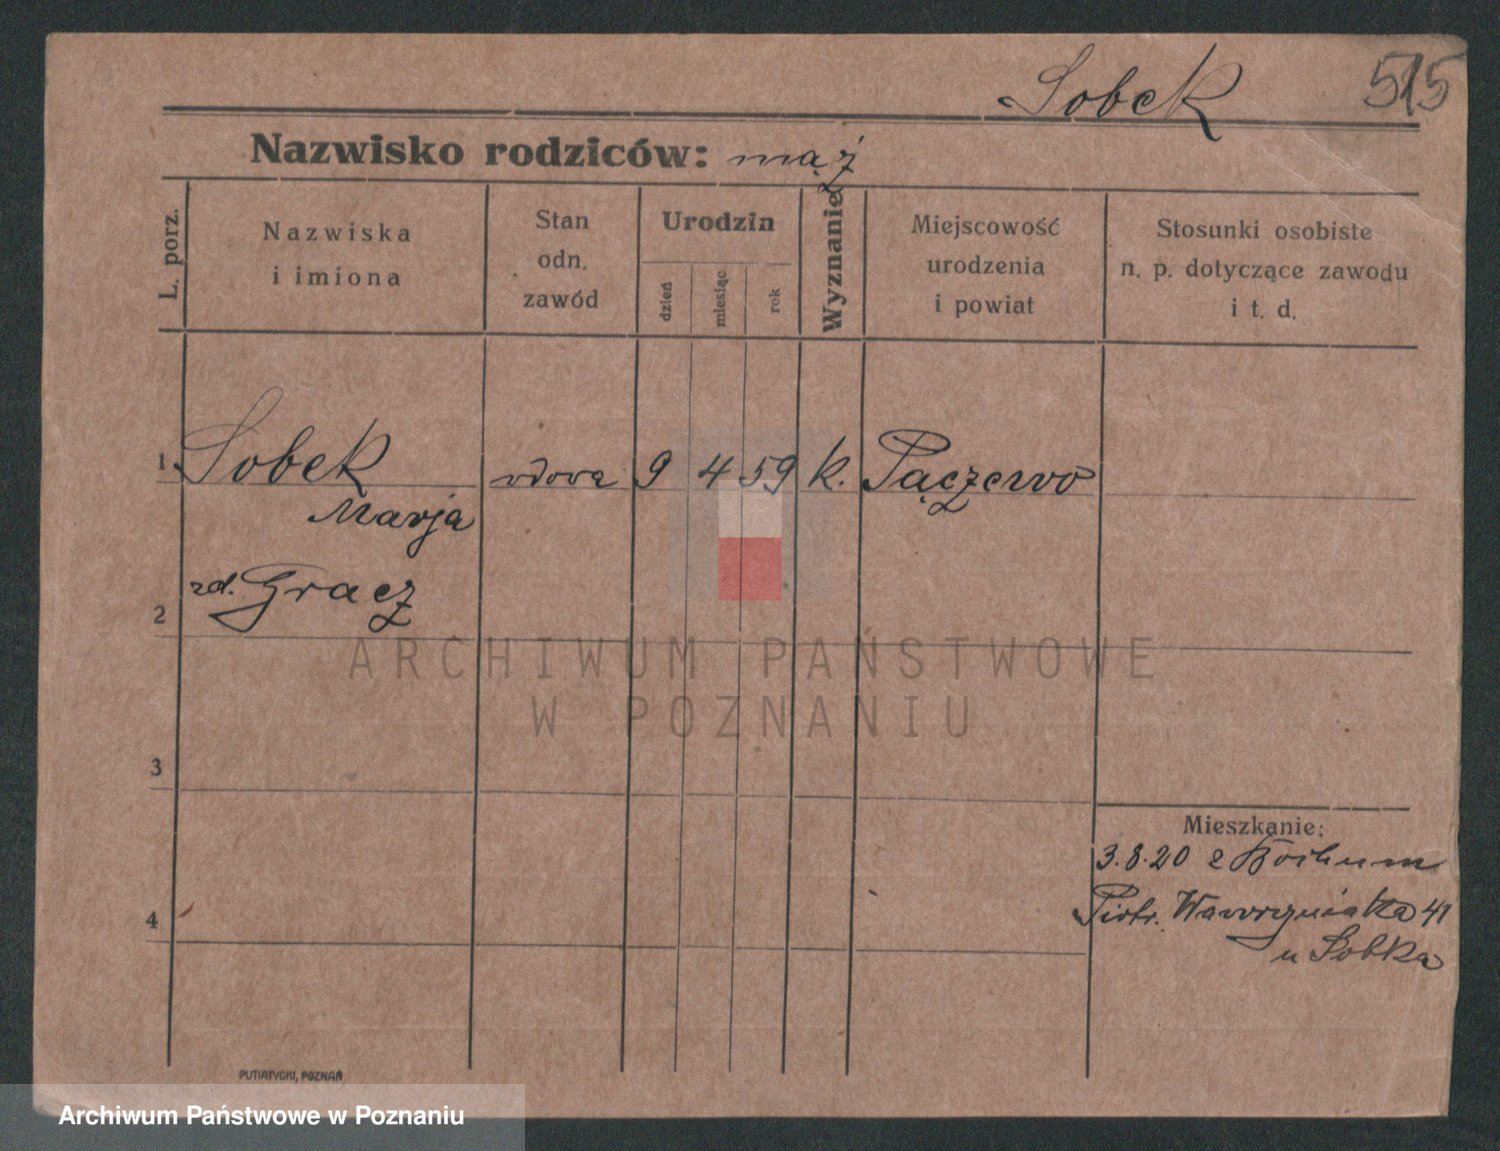 Sobek 515
Nazwisko rodziców: mąż
L. porz.
Nazwiska
i imiona
Stan
odn.
zawód
Urodzin
dzień
miesiąc
rok
Wyznanie
Miejscowość
urodzenia
i powiat
Stosunki osobiste
n. p. dotyczące zawodu
i t. d.
1 Sobek wdowa 9 4 59 k. Pączewo
Marja
2 zd. Gracz
ARCHIWUM PAŃSTWOWE
W POZNANIU
3
Mieszkanie:
3.8.20 z Bochum
4 Piotr. Wawrzyniaka 41
u Sobka
PUTIATYCKI, POZNAŃ
Archiwum Państwowe w Poznaniu